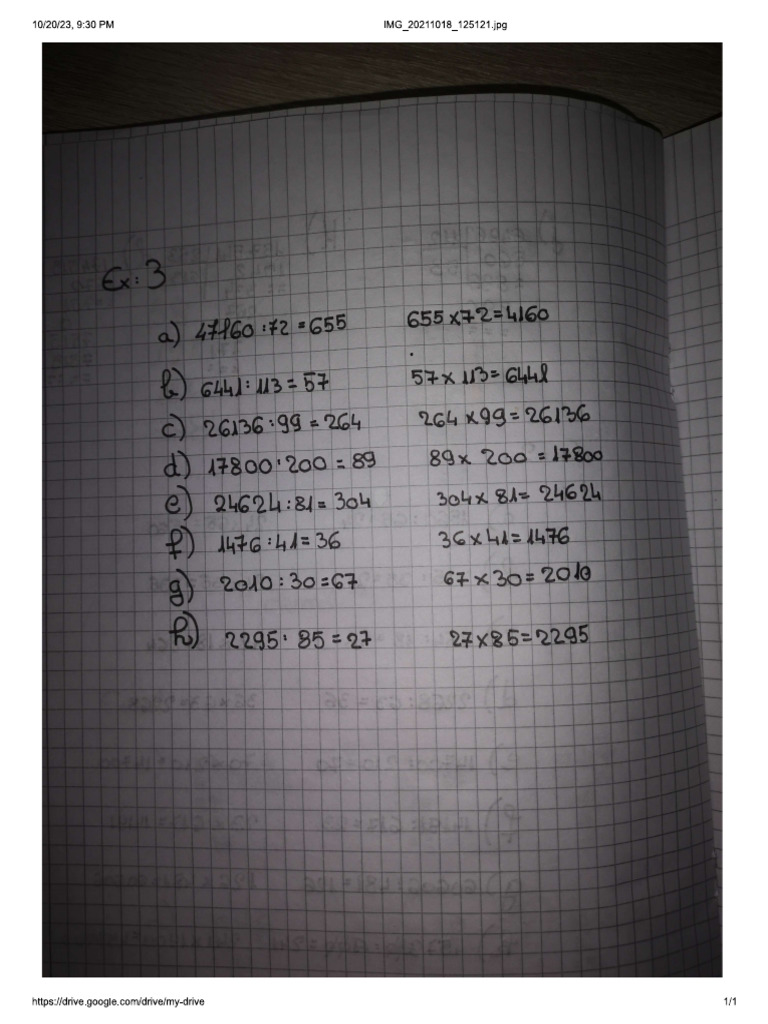 10/20/23, 9:30 PM IMG_20211018_125121.jpg
Ex: 3
a) 47160 : 72 = 655 655 x 72 = 4160
b) 6441 : 113 = 57 57 x 113 = 6441
c) 26136 : 99 = 264 264 x 99 = 26136
d) 17800 : 200 = 89 89 x 200 = 17800
e) 24624 : 81 = 304 304 x 81 = 24624
f) 1476 : 41 = 36 36 x 41 = 1476
g) 2010 : 30 = 67 67 x 30 = 2010
h) 2295 : 85 = 27 27 x 85 = 2295
https://drive.google.com/drive/my-drive 1/1